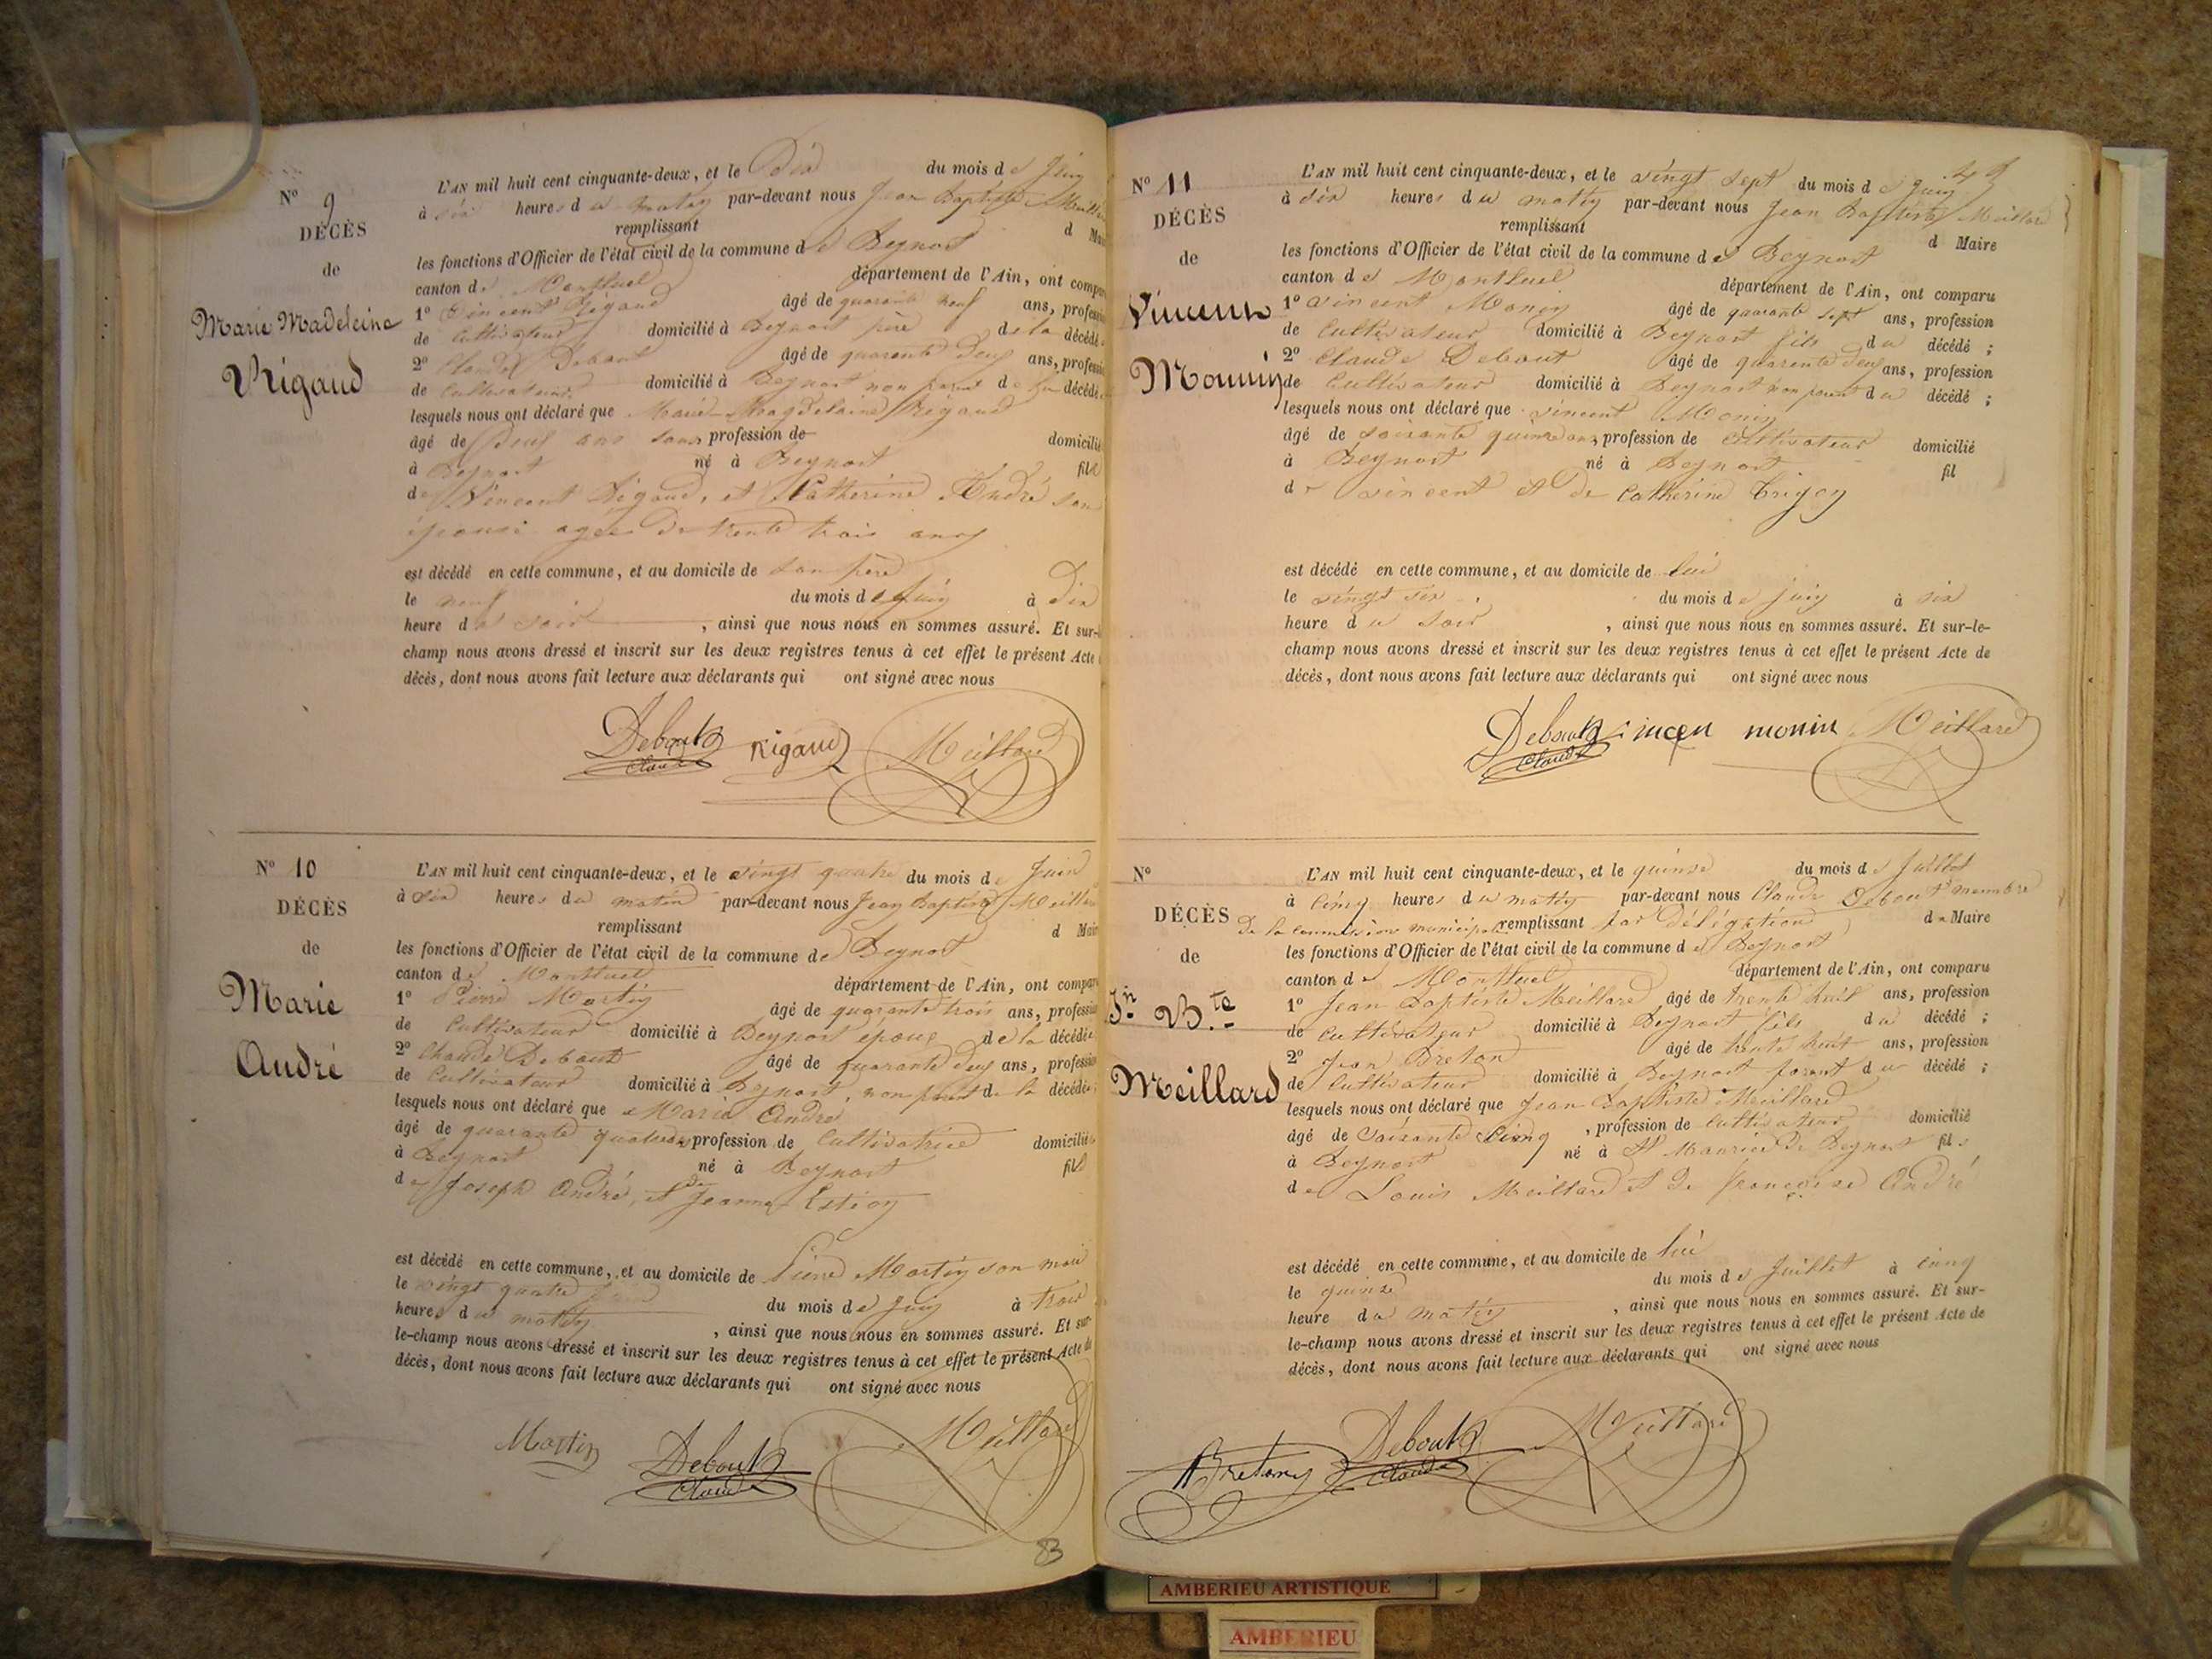 N° 9
DÉCÈS
de
Marie Madeleine
Rigaud
L'AN mil huit cent cinquante-deux, et le Dix du mois de Juin
à six heures du matin par-devant nous Jean Baptiste Meillard
remplissant d Maire
les fonctions d'Officier de l'état civil de la commune de Beynost
canton de Montluel département de l'Ain, ont comparu
1° Vincent Rigaud âgé de quarante neuf ans, profession
de Cultivateur domicilié à Beynost père de la décédée
2° Claude Debout âgé de quarante deux ans, profession
de Cultivateur domicilié à Beynost non parent de la décédée
lesquels nous ont déclaré que Marie Magdelaine Rigaud
âgé de Deux ans sans profession de domicilié
à Beynost né à Beynost fille
de Vincent Rigaud, et Catherine André son
épouse agée de trente trois ans
est décédé en cette commune, et au domicile de son père
le neuf du mois de Juin à Dix
heure du soir, ainsi que nous nous en sommes assuré. Et sur-le-
champ nous avons dressé et inscrit sur les deux registres tenus à cet effet le présent Acte
décès, dont nous avons fait lecture aux déclarants qui ont signé avec nous
Debout Claude Rigaud Meillard
N° 10
DÉCÈS
de
Marie
André
L'AN mil huit cent cinquante-deux, et le vingt quatre du mois de Juin
à six heures du matin par-devant nous Jean Baptiste Meillard
remplissant d Maire
les fonctions d'Officier de l'état civil de la commune de Beynost
canton de Montluel département de l'Ain, ont comparu
1° Pierre Martin âgé de quarante trois ans, profession
de Cultivateur domicilié à Beynost époux de la décédée
2° Claude Debout âgé de quarante deux ans, profession
de Cultivateur domicilié à Beynost, non parent de la décédée;
lesquels nous ont déclaré que Marie André
âgé de quarante quatre ans profession de Cultivatrice domicilié
à Beynost né à Beynost fille
de Joseph André, et de Jeanne Estion
est décédé en cette commune, et au domicile de Pierre Martin son mari
le vingt quatre du mois de Juin à trois
heures du matin, ainsi que nous nous en sommes assuré. Et sur-
le-champ nous avons dressé et inscrit sur les deux registres tenus à cet effet le présent Acte de
décès, dont nous avons fait lecture aux déclarants qui ont signé avec nous
Martin Debout Claude Meillard
83
N° 11
DÉCÈS
de
Vincent
Monin
43
L'AN mil huit cent cinquante-deux, et le vingt sept du mois de Juin
à six heures du matin par-devant nous Jean Baptiste Meillard
remplissant d Maire
les fonctions d'Officier de l'état civil de la commune de Beynost
canton de Montluel département de l'Ain, ont comparu
1° Vincent Monin âgé de quarante sept ans, profession
de Cultivateur domicilié à Beynost fils du décédé;
2° Claude Debout âgé de quarante deux ans, profession
de Cultivateur domicilié à Beynost non parent du décédé;
lesquels nous ont déclaré que Vincent Monin
âgé de soixante quinze ans, profession de Cultivateur domicilié
à Beynost né à Beynost fil
de Vincent et de Catherine
est décédé en cette commune, et au domicile de lui
le vingt six du mois de Juin à six
heure du soir, ainsi que nous nous en sommes assuré. Et sur-le-
champ nous avons dressé et inscrit sur les deux registres tenus à cet effet le présent Acte de
décès, dont nous avons fait lecture aux déclarants qui ont signé avec nous
Debout Claude monin Meillard
N°
DÉCÈS
de
Jn Bte
Meillard
L'AN mil huit cent cinquante-deux, et le quinze du mois de Juillet
à cinq heures du matin par-devant nous Claude Debout membre
De la commission municipale remplissant par Délégation de Maire
les fonctions d'Officier de l'état civil de la commune de Beynost
canton de Montluel département de l'Ain, ont comparu
1° Jean Baptiste Meillard âgé de trente huit ans, profession
de cultivateur domicilié à Beynost fils du décédé;
2° Jean Breton âgé de trente huit ans, profession
de Cultivateur domicilié à Beynost parent du décédé;
lesquels nous ont déclaré que Jean Baptiste Meillard
âgé de soixante cinq, profession de Cultivateur domicilié
à Beynost né à St Maurice de Beynost fils
de Louis Meillard et de françoise André
est décédé en cette commune, et au domicile de lui
le quinze du mois de Juillet à cinq
heure du matin, ainsi que nous nous en sommes assuré. Et sur-
le-champ nous avons dressé et inscrit sur les deux registres tenus à cet effet le présent Acte de
décès, dont nous avons fait lecture aux déclarants qui ont signé avec nous
Debout Claude Meillard
AMBERIEU ARTISTIQUE
AMBERIEU